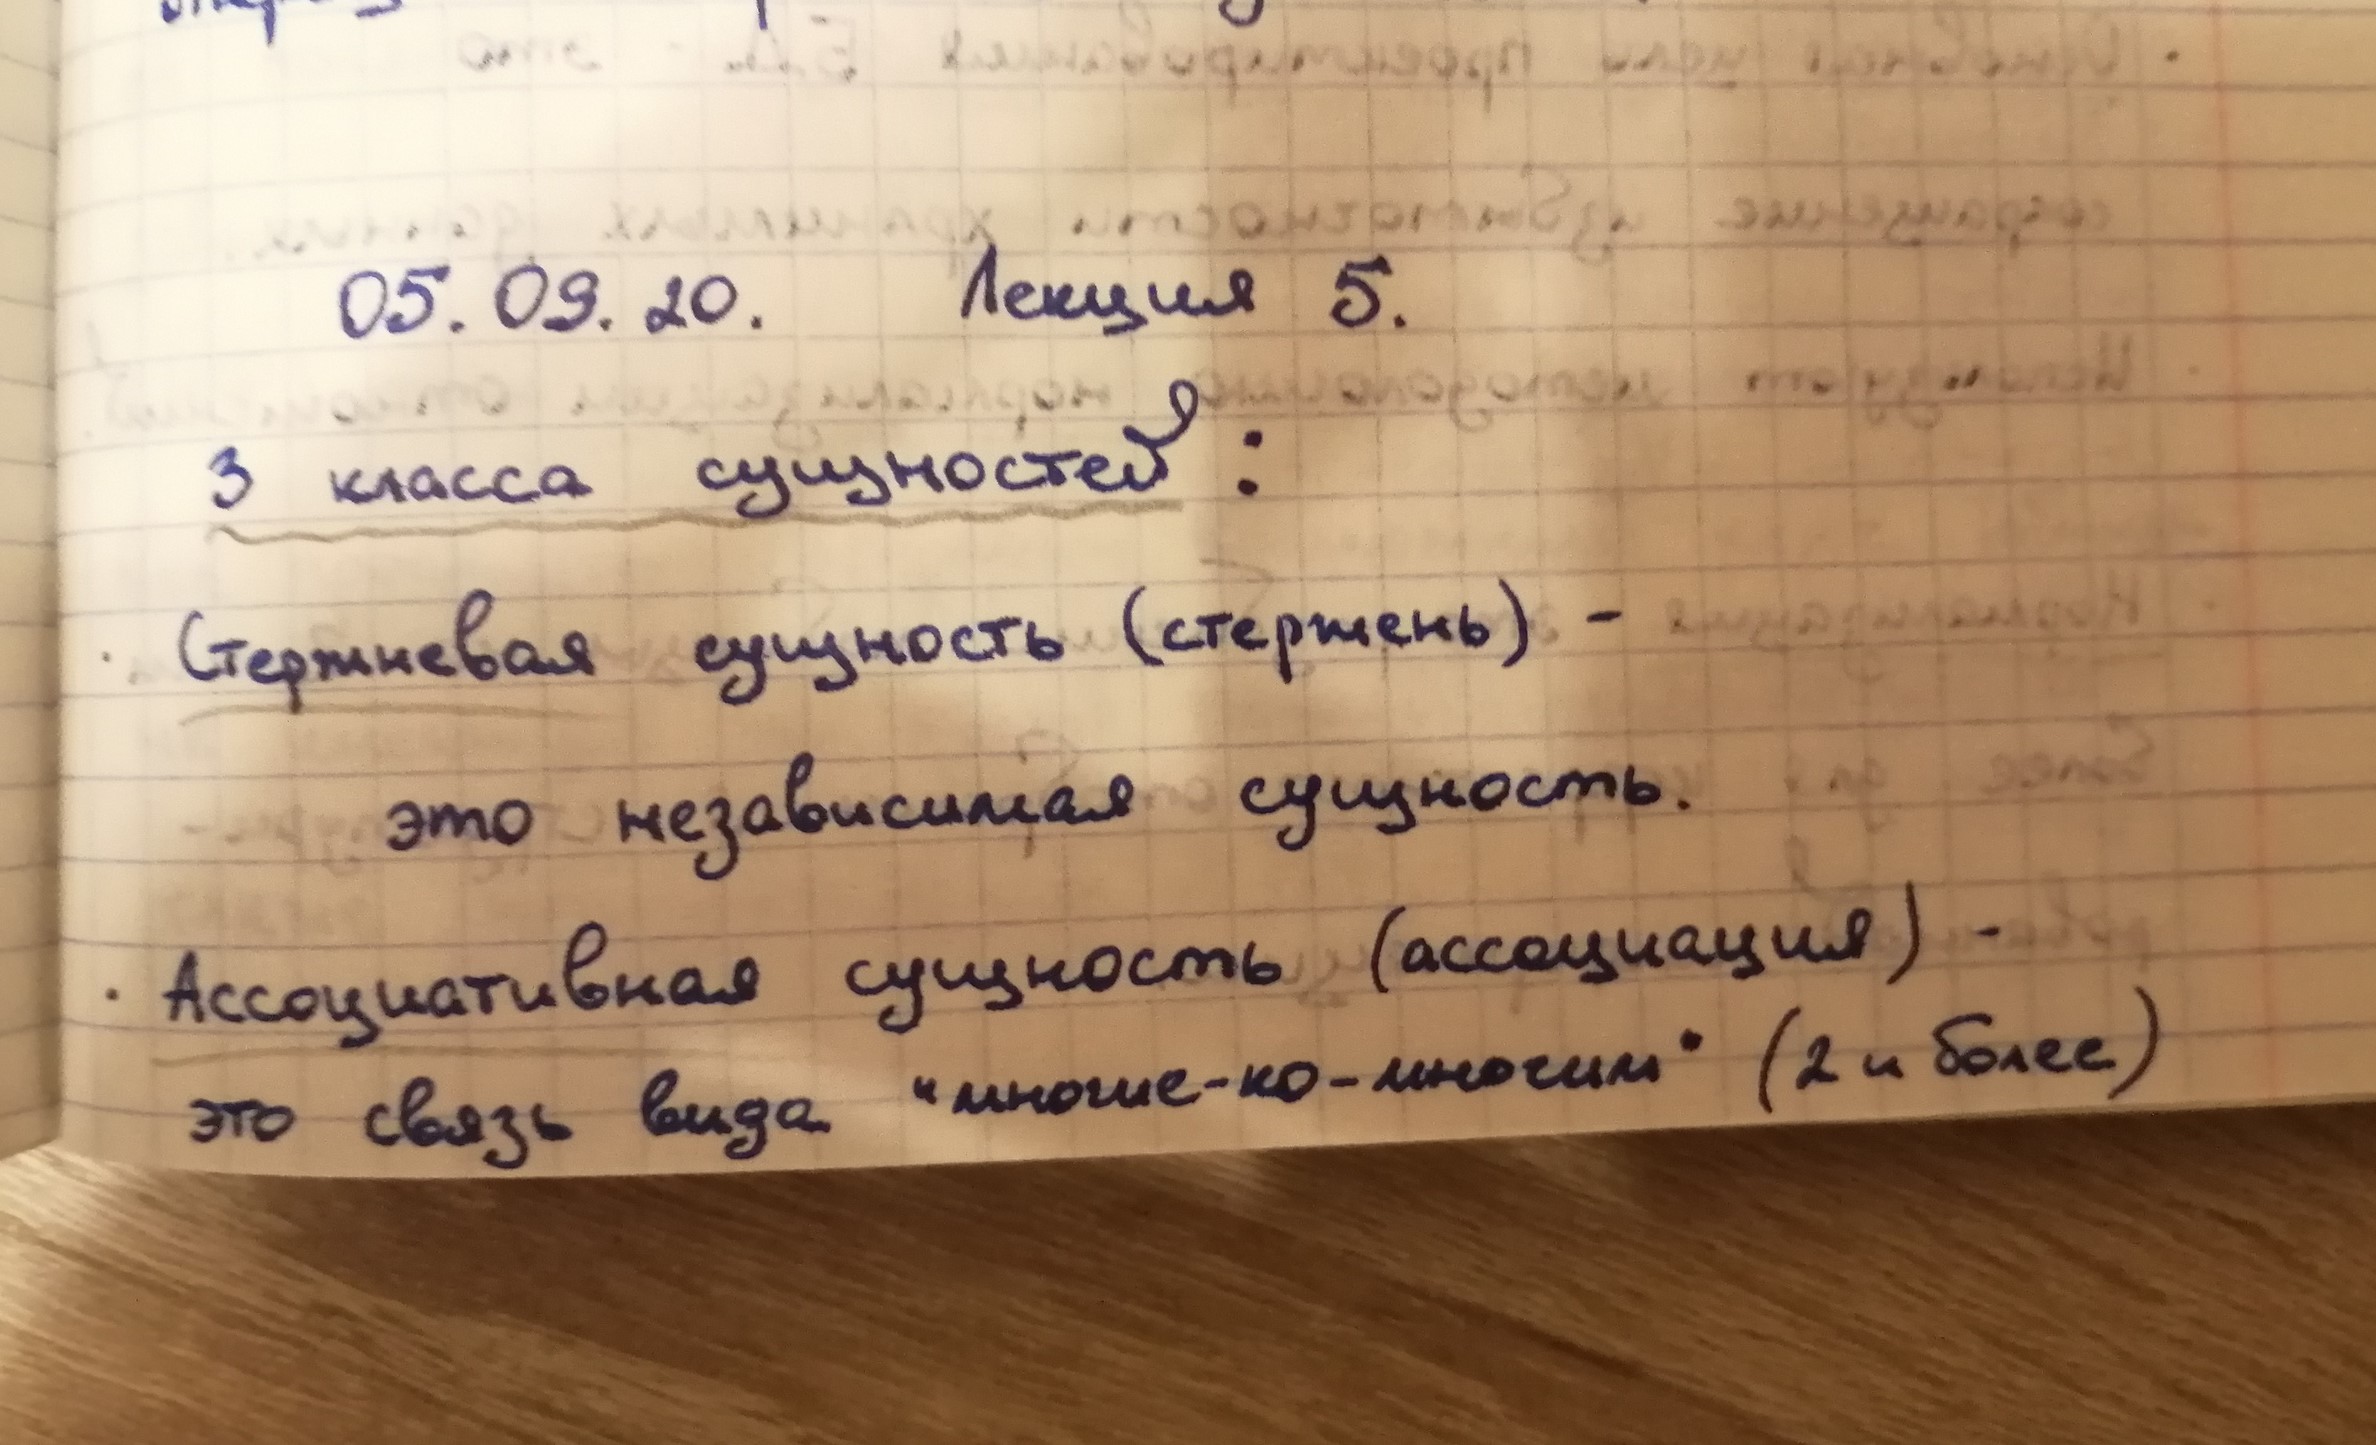 05.09.20. Лекция 5.
3 класса сущностей:
· Стержневая сущность (стержень) -
это независимая сущность.
· Ассоциативная сущность (ассоциация) -
это связь вида "многие-ко-многим" (2 и более)